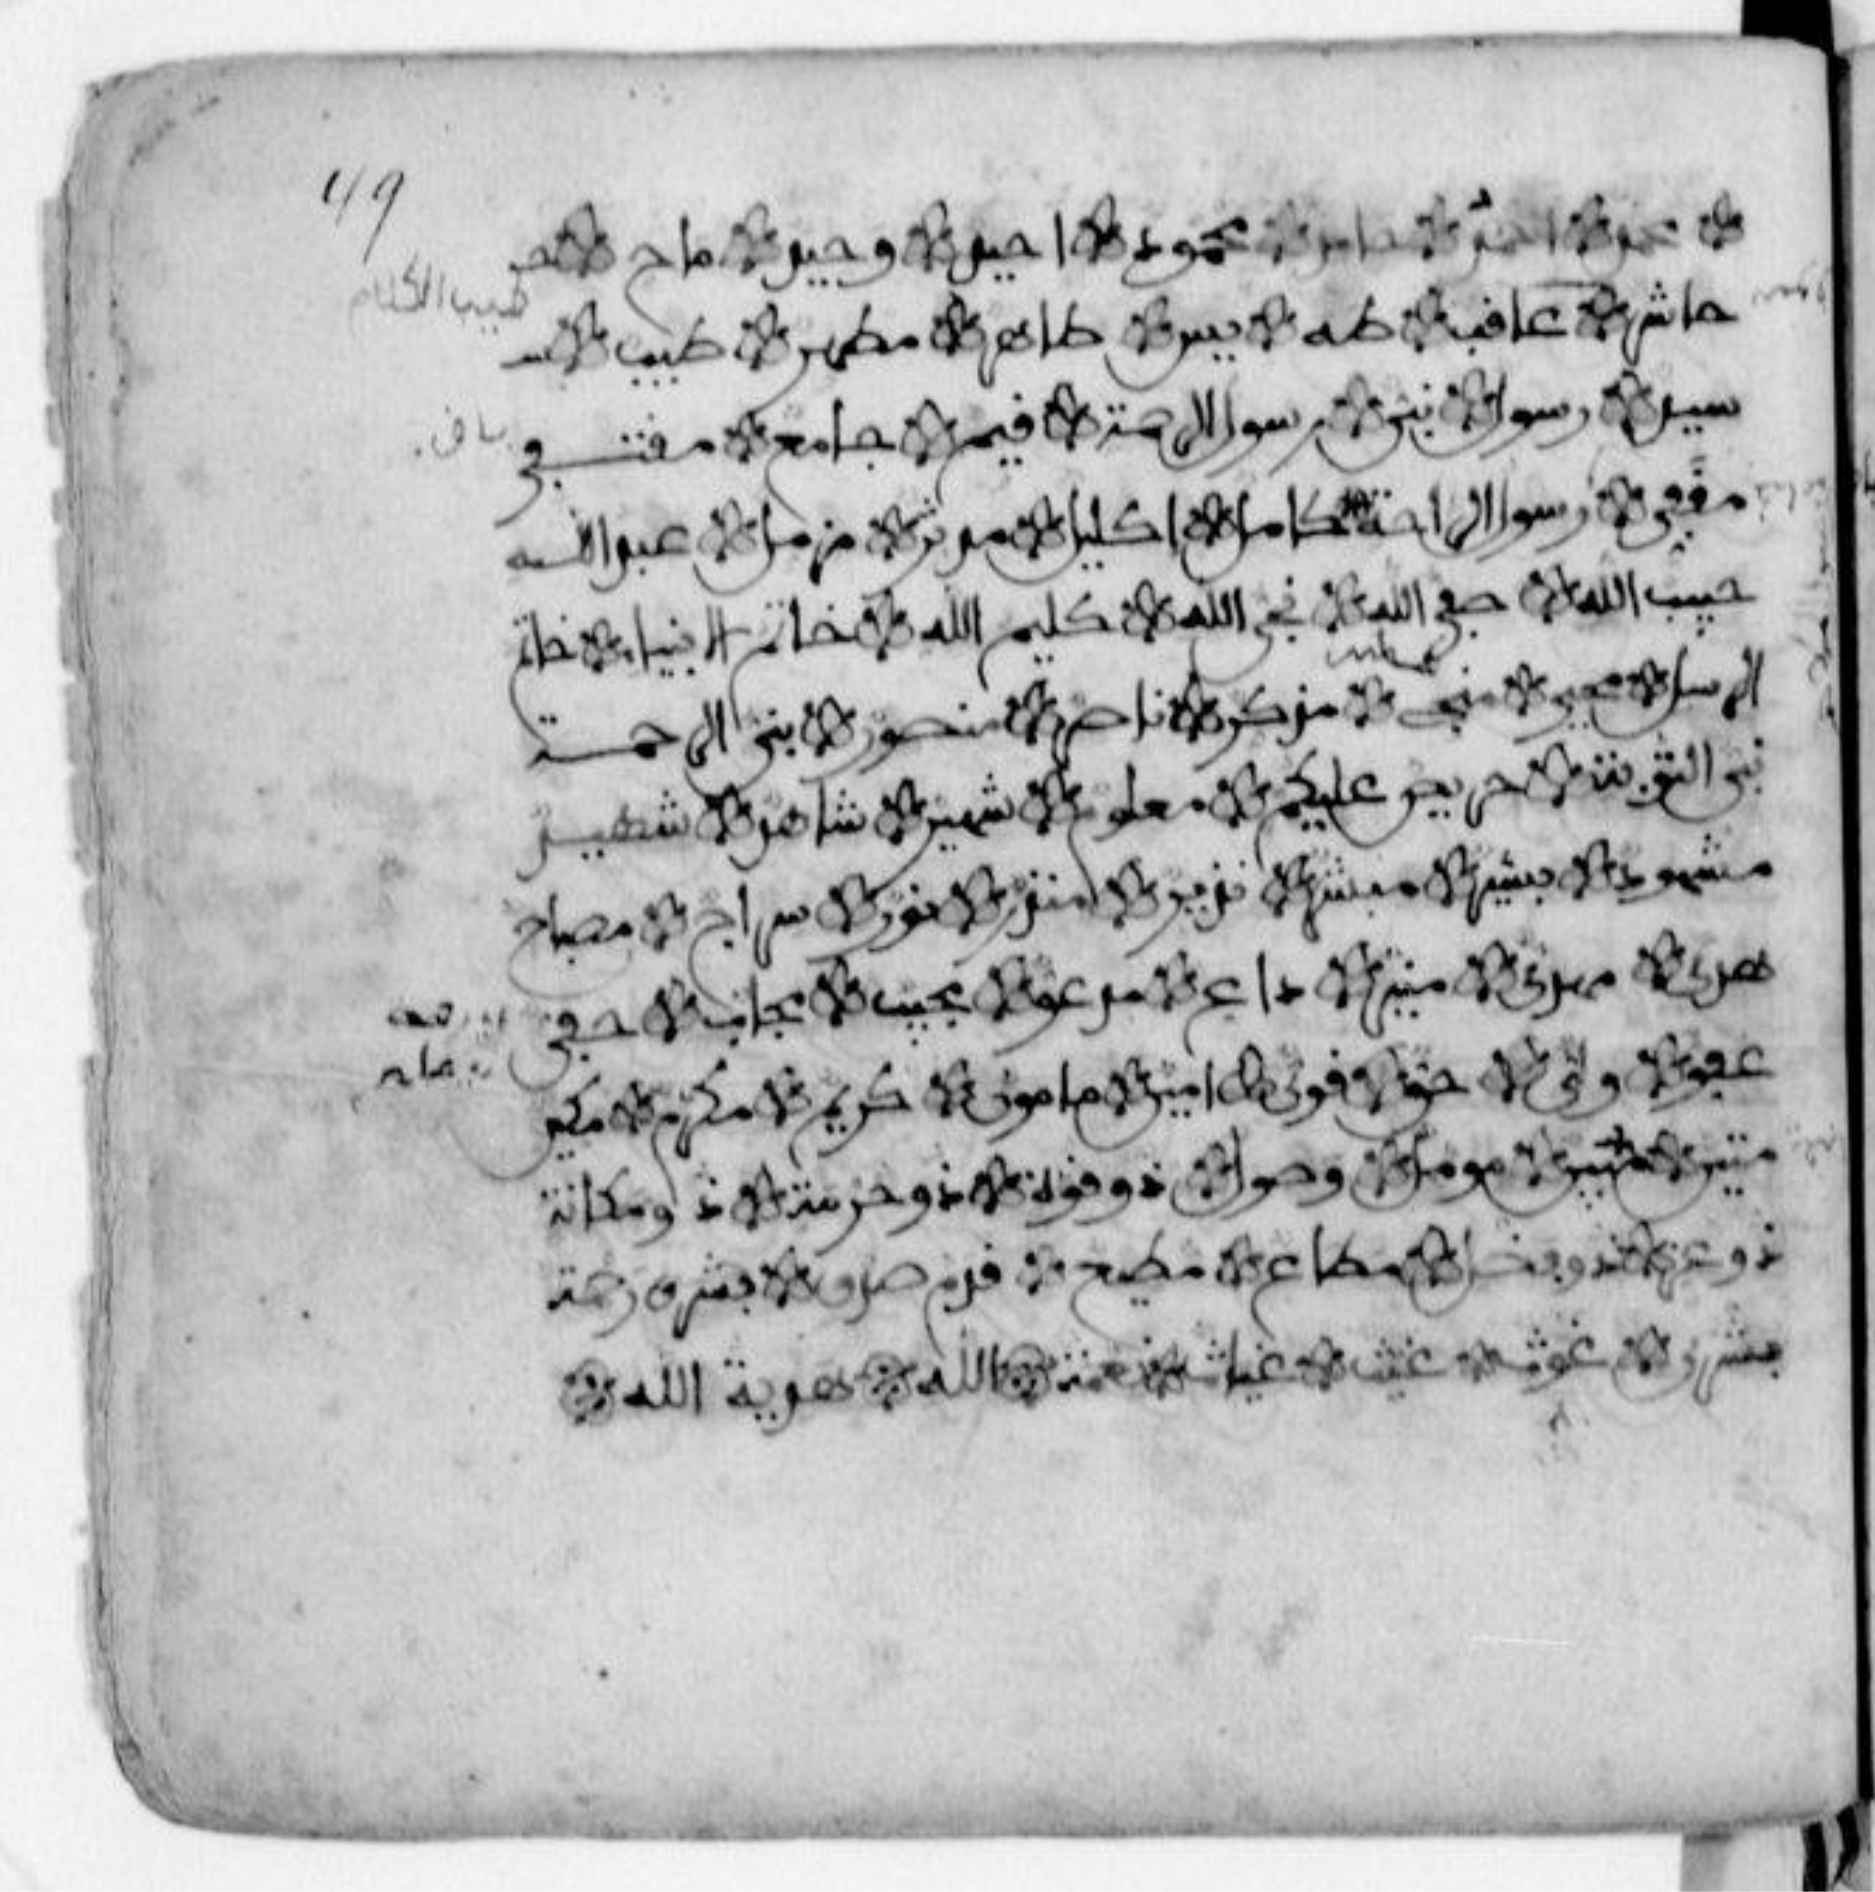 49
محمد احمد حامد محمود احيد وحيد ماح
طيب الكلام
حاشر عاقب طه يس طاهر مطهر طيب
سيد رسول نبي رسول الرحمة قيم جامع مقتفي
مقفى رسول الراحة كامل اكليل مدثر مزمل عبد الله
حبيب الله صفي الله نجي الله كليم الله خاتم الانبياء خاتم
الرسل محيي منجي مذكر ناصر منصور نبي الرحمة
نبي التوبة حريص عليكم معلوم شهير شاهد شهيد
مشهود بشير مبشر نذير منذر نور سراج مصباح
هدى مهدي منير داع مدعو مجيب مجاب حفي
عفو ولي حق قوي امين مامون كريم مكرم مكين
متين مبين مومل وصول ذو قوة ذو حرمة ذو مكانة
ذو عز ذو فضل مطاع مطيع قدم صدق بشرى رحمة
غوث غيث غياث نعمة الله هدية الله